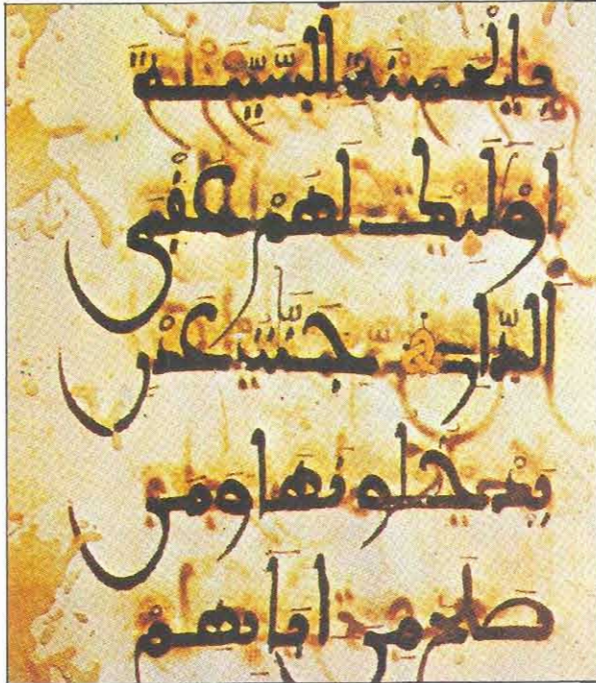 بِالْحَسَنَةِ السَّيِّئَةَ
أُوْلَٰئِكَ لَهُمْ عُقْبَى
الدَّارِ جَنَّٰتُ عَدْنٍ
يَدْخُلُونَهَا وَمَن
صَلَحَ مِنْ ءَابَائِهِمْ